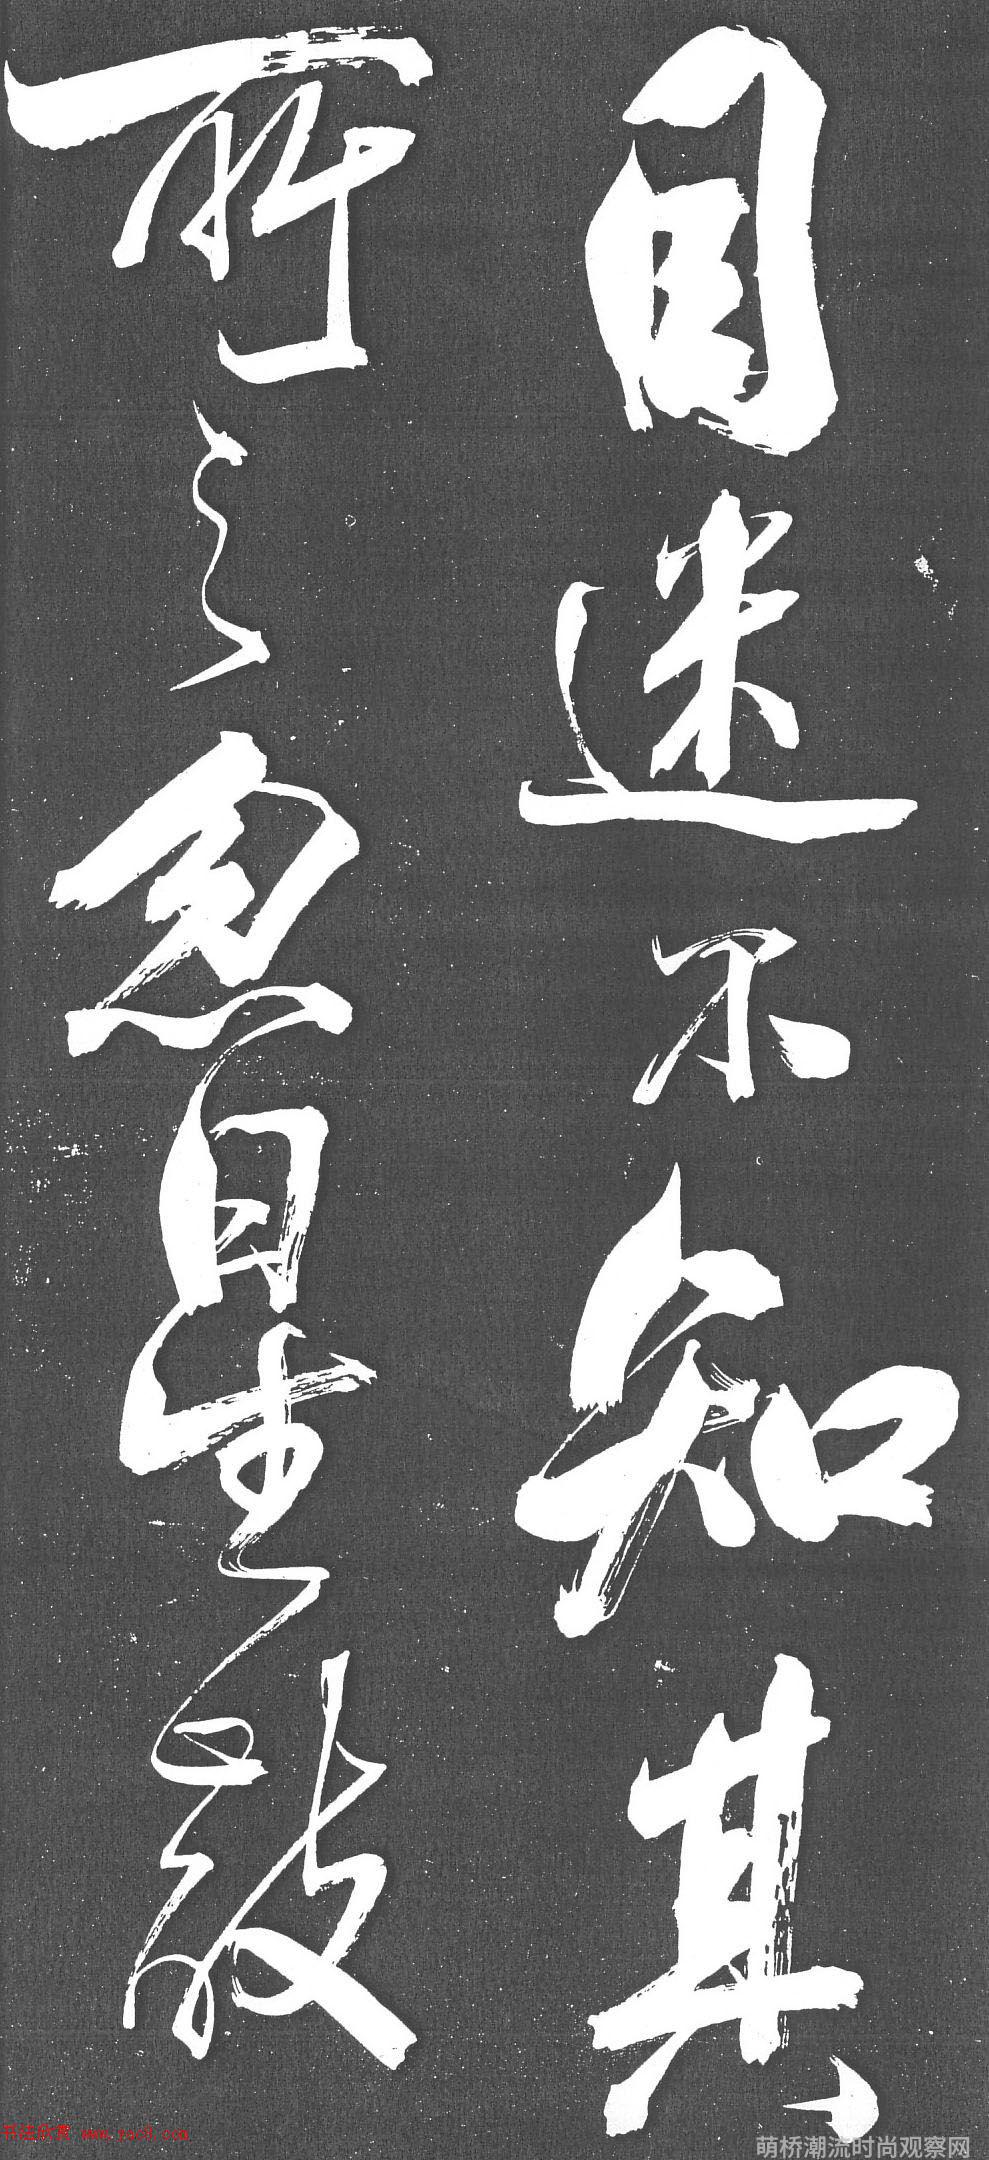 目迷不知其
所之忽星散
书法欣赏 www.yac8.com
萌桥潮流时尚观察网